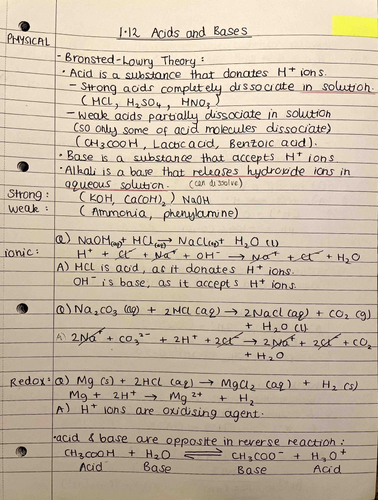 1.12 Acids and Bases
PHYSICAL
- Bronsted-Lowry Theory:
• Acid is a substance that donates H⁺ ions.
- Strong acids completely dissociate in solution.
(HCL, H₂SO₄, HNO₃)
- Weak acids partially dissociate in solution
(so only some of acid molecules dissociate)
(CH₃COOH, Lactic acid, Benzoic acid).
• Base is a substance that accepts H⁺ ions
• Alkali is a base that releases hydroxide ions in
aqueous solution. (can dissolve)
Strong: (KOH, Ca(OH)₂) NaOH
weak: (Ammonia, phenylamine)
Q) NaOH(aq) + HCl(aq) → NaCl(aq) + H₂O (l)
ionic: H⁺ + Cl⁻ + Na⁺ + OH⁻ → Na⁺ + Cl⁻ + H₂O
A) HCL is acid, as it donates H⁺ ions.
OH⁻ is base, as it accepts H⁺ ions.
Q) Na₂CO₃ (aq) + 2HCl (aq) → 2NaCl (aq) + CO₂ (g)
+ H₂O (l)
A) 2Na⁺ + CO₃²⁻ + 2H⁺ + 2Cl⁻ → 2Na⁺ + 2Cl⁻ + CO₂
+ H₂O
Redox: Q) Mg (s) + 2HCl (aq) → MgCl₂ (aq) + H₂ (s)
Mg + 2H⁺ → Mg²⁺ + H₂
A) H⁺ ions are oxidising agent.
• acid & base are opposite in reverse reaction:
CH₃COOH + H₂O ⇌ CH₃COO⁻ + H₃O⁺
Acid Base Base Acid